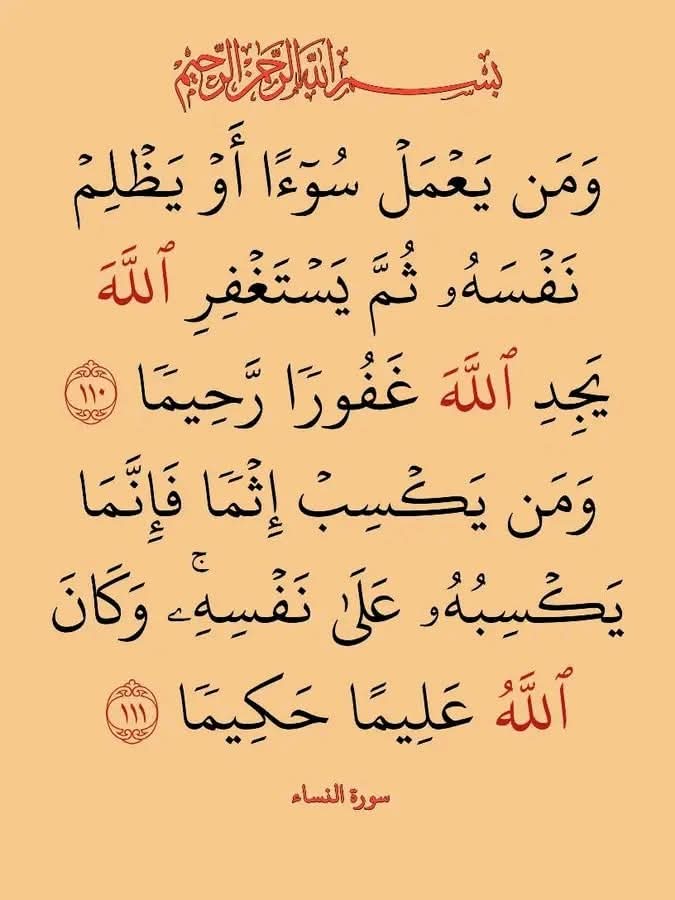 بِسْمِ اللَّهِ الرَّحْمَٰنِ الرَّحِيمِ
وَمَن يَعْمَلْ سُوٓءًا أَوْ يَظْلِمْ
نَفْسَهُۥ ثُمَّ يَسْتَغْفِرِ ٱللَّهَ
يَجِدِ ٱللَّهَ غَفُورًا رَّحِيمًا ١١٠
وَمَن يَكْسِبْ إِثْمًا فَإِنَّمَا
يَكْسِبُهُۥ عَلَىٰ نَفْسِهِۦۚ وَكَانَ
ٱللَّهُ عَلِيمًا حَكِيمًا ١١١
سورة النساء